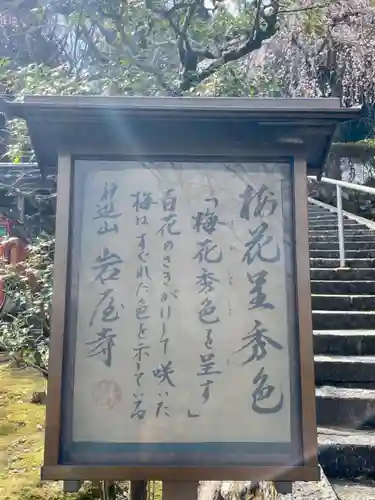 梅花呈秀色
「梅花秀色を呈す」
百花のさきがけして咲いた
梅はすぐれた色を示している
岩屋寺